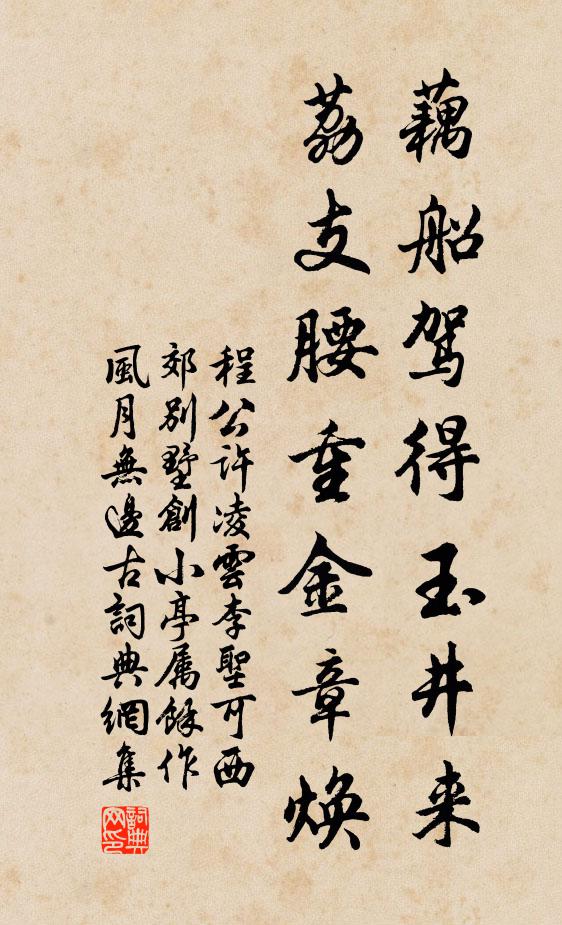 藕船駕得玉井来
荔支腰重金章焕
程公許凌雲李聖可西
郊别墅創小亭属餘作
風月無邊古詞典網集
詞典網印